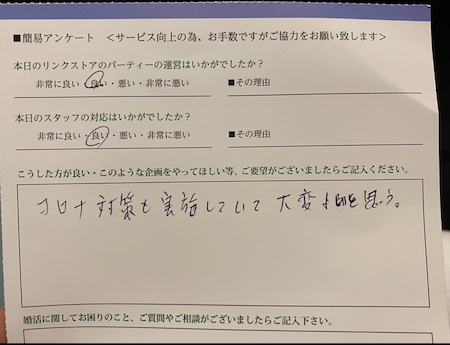 ■簡易アンケート ＜サービス向上の為、お手数ですがご協力をお願い致します＞
本日のリンクストアのパーティーの運営はいかがでしたか？
非常に良い・良い・悪い・非常に悪い ■その理由
本日のスタッフの対応はいかがでしたか？
非常に良い・良い・悪い・非常に悪い ■その理由
こうした方が良い・このような企画をやってほしい等、ご要望がございましたらご記入ください。
コロナ対策も実施していて大変 思う。
婚活に関してお困りのこと、ご質問やご相談がございましたらご記入下さい。